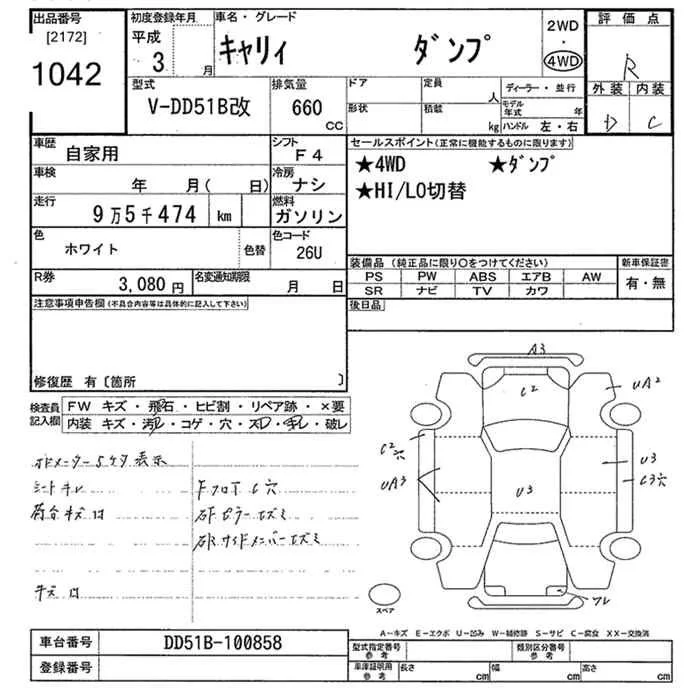 出品番号 初度登録年月 車名・グレード 2WD 評価点
[2172] 平成 キャリィ ダンプ ・
1042 3 月 4WD R
型式 排気量 ドア 定員 人 ディーラー・並行 外装 内装
V-DD51B改 660 CC 形状 積載 kg モデル年式 年 D C
ハンドル 左・右
車歴 自家用 シフト F4 セールスポイント(正常に機能するものに限ります)
車検 年 月( 日) 冷房 ナシ ★4WD ★ダンプ
走行 9万5千474 km 燃料 ガソリン ★HI/LO切替
色 ホワイト 色替 色コード 26U
装備品 (純正品に限り〇をつけてください) 新車保証書
R券 3,080円 名変通知期限 月 日 PS PW ABS エアB AW 有・無
SR ナビ TV カワ
注意事項申告欄(不具合内容等は具体的に記入して下さい) 後日品
修復歴 有〔箇所 〕
検査員記入欄 FW キズ・飛石・ヒビ割・リペア跡・×要
内装 キズ・汚レ・コゲ・穴・スレ・キレ・破レ
オドメーター5ケタ表示
シートキレ Fフロア C穴
荷台キズ凹
キズ凹
A3
C2
UA2
C2穴
UA3
U3
U3
C3穴
スペア
A-キズ E-エクボ U-凹み W-補修跡 S-サビ C-腐食 XX-交換済
車台番号 DD51B-100858 型式指定番号 参考 類別区分番号 参考
登録番号 車庫証明用 参考 長さ cm 幅 cm 高さ cm